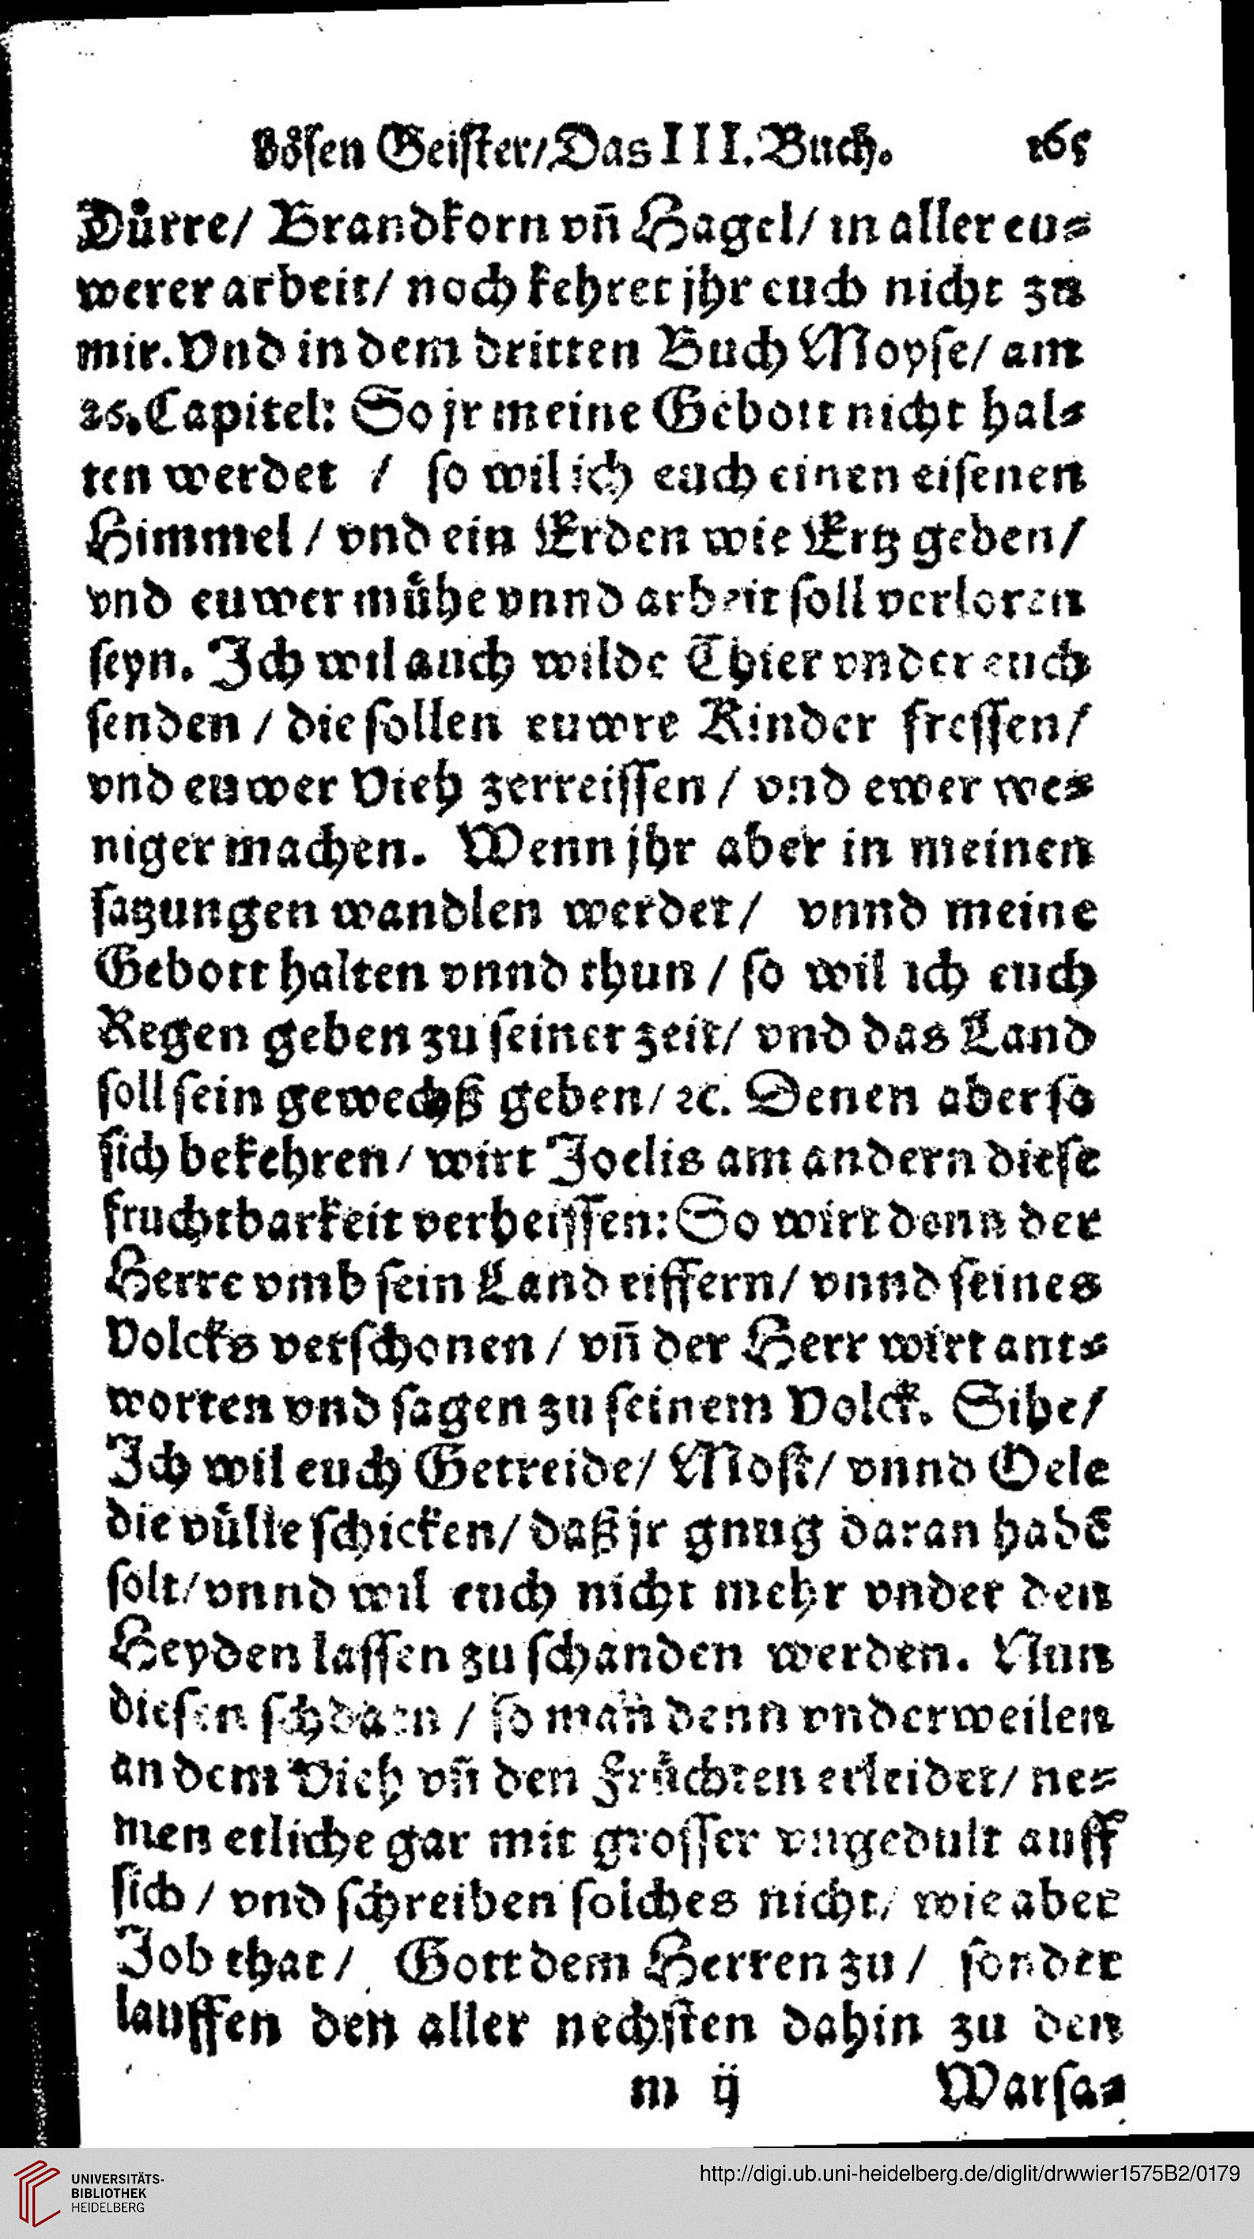 bösen Geister/Das III. Buch. 165
Dürre/ Brandkorn vn̄ Hagel/ in aller eu⸗
werer arbeit/ noch kehret jhr euch nicht zu
mir. Vnd in dem dritten Buch Moyse/ am
26. Capitel: So jr meine Gebott nicht hal⸗
ten werdet / so wil ich euch einen eisenen
Himmel / vnd ein Erden wie Ertz geben/
vnd euwer mühe vnnd arbeit soll verloren
seyn. Ich wil auch wilde Thier vnder euch
senden / die sollen euwre Kinder fressen/
vnd euwer Vieh zerreissen / vnd ewer we⸗
niger machen. Wenn jhr aber in meinen
satzungen wandlen werdet/ vnnd meine
Gebott halten vnnd thun / so wil ich euch
Regen geben zu seiner zeit/ vnd das Land
soll sein gewechß geben/ ꝛc. Denen aber so
sich bekehren/ wirt Joelis am andern diese
fruchtbarkeit verheissen: So wirt denn der
Herre vmb sein Land eiffern/ vnnd seines
Volcks verschonen / vn̄ der Herr wirt ant⸗
worten vnd sagen zu seinem Volck. Sihe/
Ich wil euch Getreide/ Most/ vnnd Oele
die vülle schicken/ daß jr gnug daran habē
solt/ vnnd wil euch nicht mehr vnder den
Heyden lassen zu schanden werden. Nun
diesen schaden / so man denn vnderweilen
an dem Vieh vn̄ den Früchten erleidet/ ne⸗
men etliche gar mit grosser vngedult auff
sich / vnd schreiben solches nicht/ wie aber
Job that/ Gott dem Herren zu / sonder
lauffen den aller nechsten dahin zu den
m ij Warsa⸗
UNIVERSITÄTS-
BIBLIOTHEK
HEIDELBERG
http://digi.ub.uni-heidelberg.de/diglit/drwwier1575B2/0179